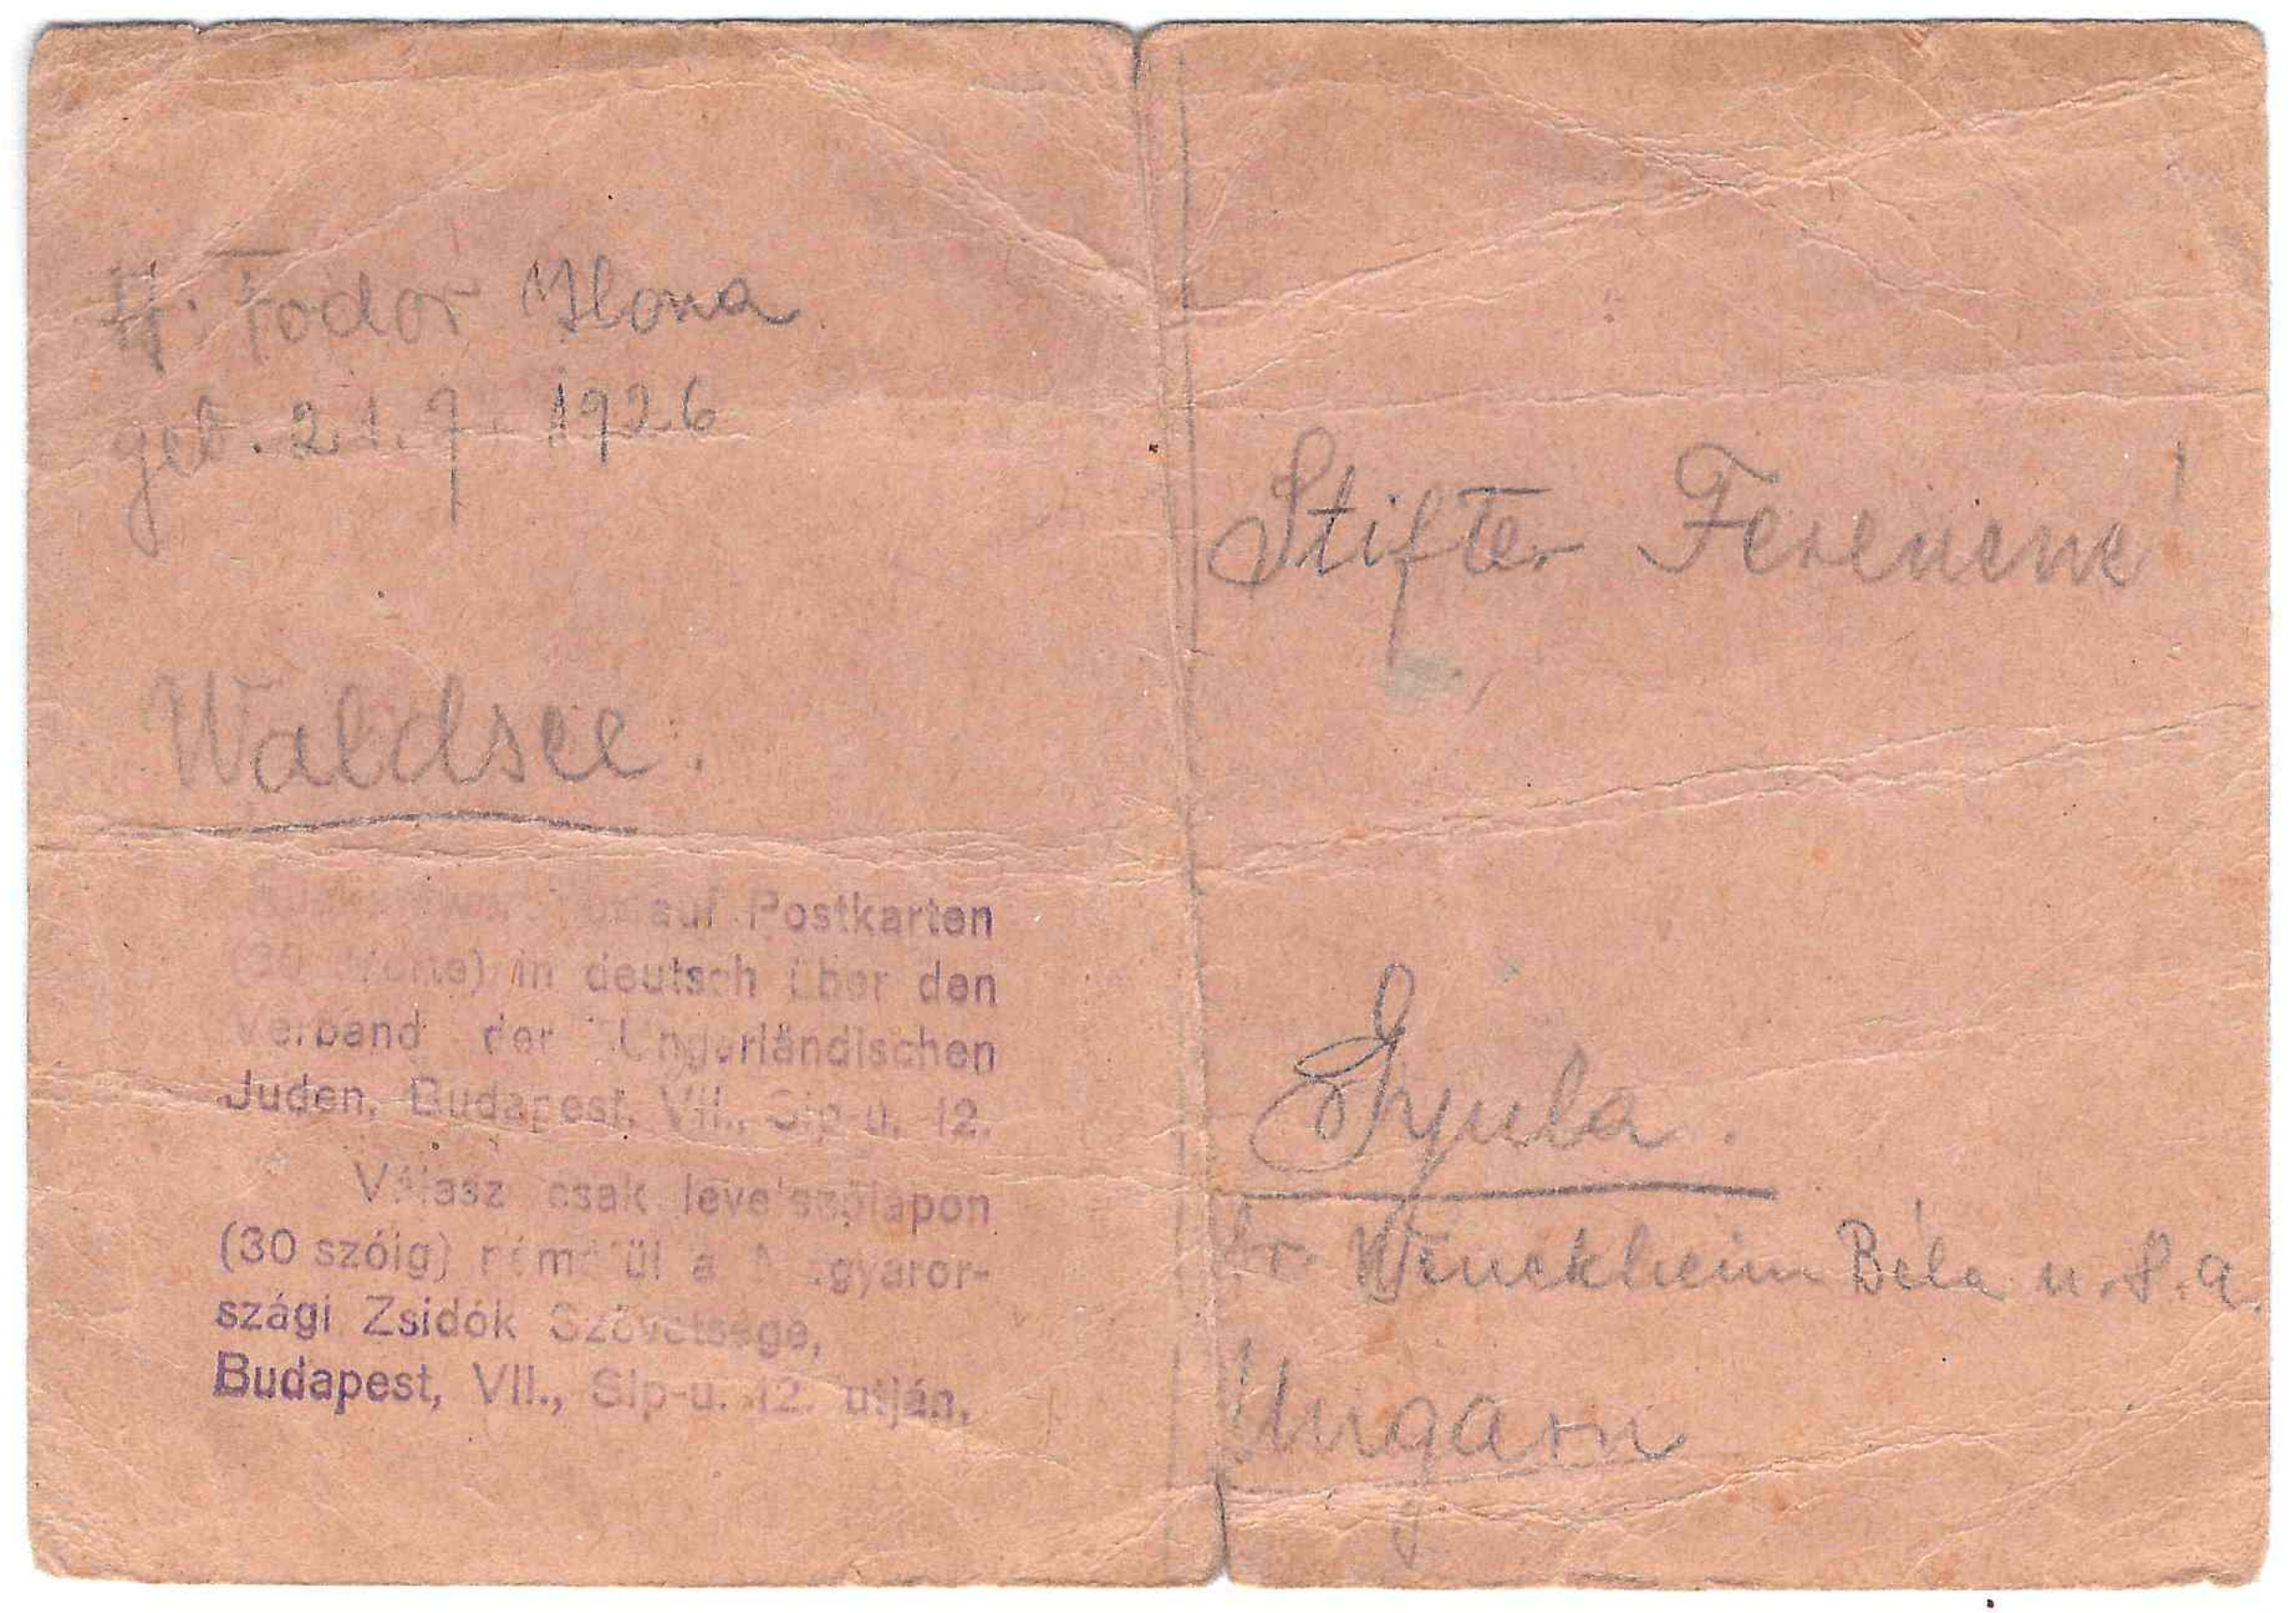 Fodor Ilona
geb. 21. 7. 1926
Waldsee.
auf Postkarten
(30 Worte) in deutsch über den
Verband der Ungarländischen
Juden, Budapest, VII., Sip-u. 12.
Válasz csak levelezőlapon
(30 szóig) németül a Magyaror-
szági Zsidók Szövetsége,
Budapest, VII., Sip-u. 12. utján.
Stifter Ferencné
Gyula.
Wenckheim Béla u. 8. a.
Ungarn